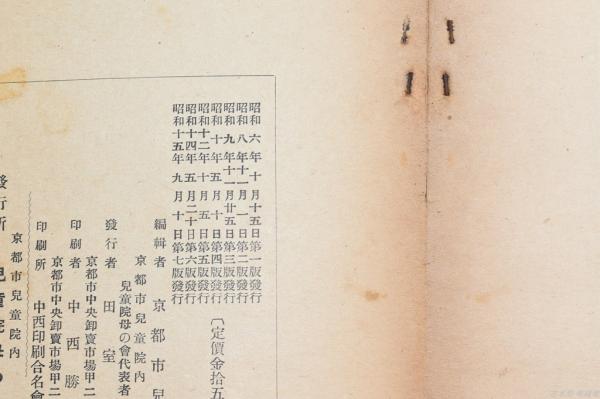 昭和六年十月十五日第一版發行
昭和八年十一月一日第二版發行
昭和九年十一月廿五日第三版發行
昭和十年五月十日第四版發行
昭和十二年十月五日第五版發行
昭和十四年五月二十日第六版發行
昭和十五年九月十日第七版發行
〔定價金拾五
編輯者 京都市兒
京都市兒童院內
兒童院母の會代表者
發行者 田室
京都市中央卸賣市場甲二
印刷者 中西勝
京都市中央卸賣市場甲二
印刷所 中西印刷合名會
京都市兒童院內
發行所 兒童院母の